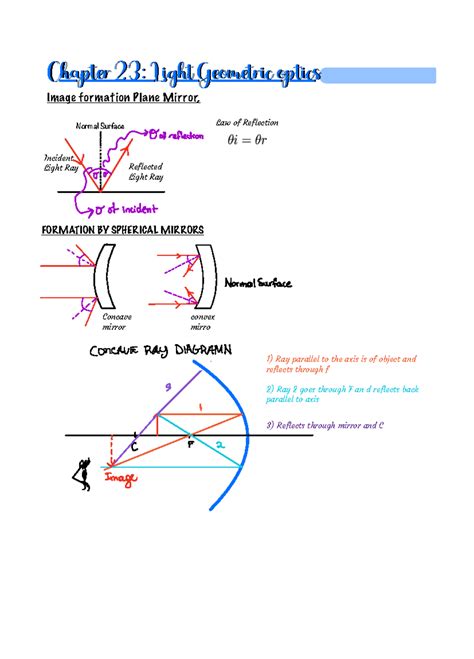 Chapter 23: Light Geometric optics
Image formation Plane Mirror,
Law of Reflection
Normal Surface
θ of reflection
θi = θr
Incident
Light Ray
Reflected
Light Ray
θ of incident
FORMATION BY SPHERICAL MIRRORS
Normal Surface
Concave
mirror
convex
mirro
CONCAVE RAY DIAGRAMN
1) Ray parallel to the axis is of object and
reflects through f
3
2) Ray 2 goes through F an d reflects back
parallel to axis
1
3) Reflects through mirror and C
C
F
2
Image